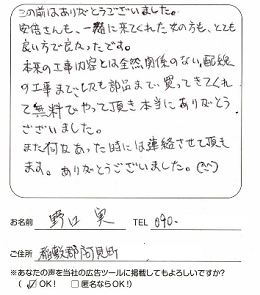 この前はありがとうございました。
安倍さんも、一緒に来てくれた女の方も、とても
良い方で良かったです。
本来の工事内容とは全然関係のない配線
の工事まで、しかも部品まで買ってきてくれ
て無料でやって頂き本当にありがとう
ございました。
また何かあった時には連絡させて頂き
ます。ありがとうございました。(^^)
お名前 野口 実 TEL 090-
ご住所 稲敷郡阿見町
※あなたの声を当社の広告ツールに掲載してもよろしいですか?
(✓OK! □匿名ならOK!)